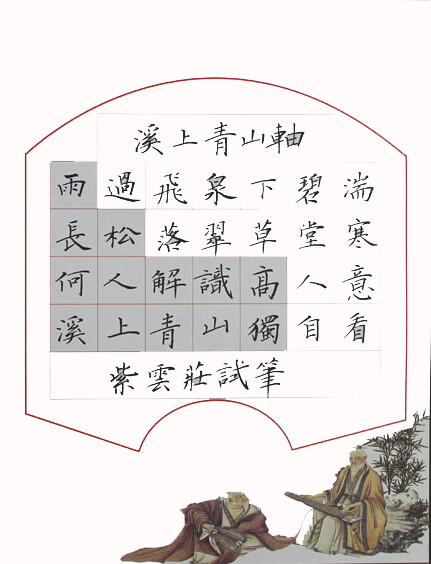 溪上青山軸
雨過飛泉下碧湍
長松落翠草堂寒
何人解識高人意
溪上青山獨自看
紫雲莊試筆